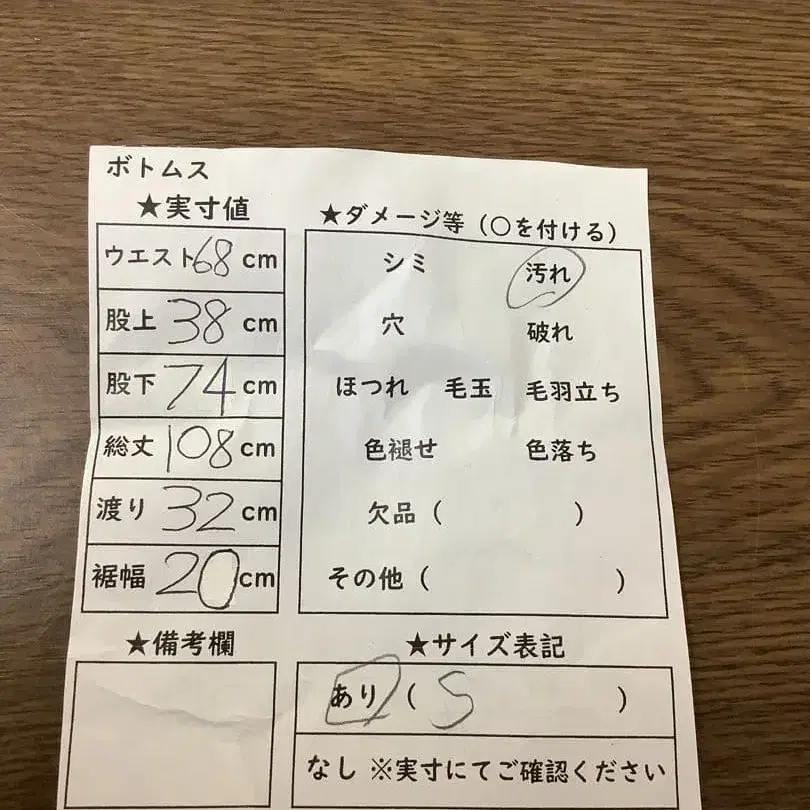 ボトムス
★実寸値
ウエスト68cm
股上38cm
股下74cm
総丈108cm
渡り32cm
裾幅20cm
★備考欄
★ダメージ等（〇を付ける）
シミ 汚れ
穴 破れ
ほつれ 毛玉 毛羽立ち
色褪せ 色落ち
欠品（ ）
その他（ ）
★サイズ表記
あり（ S ）
なし ※実寸にてご確認ください